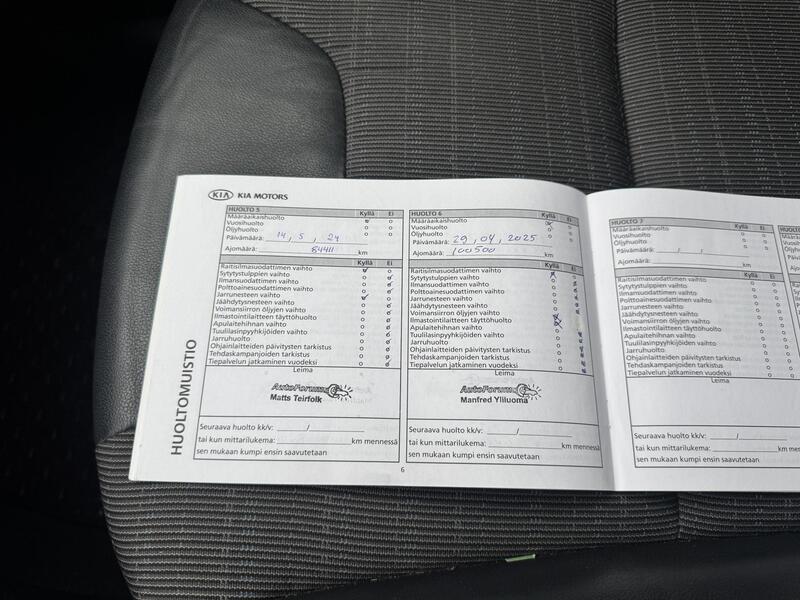 KIA KIA MOTORS
HUOLTOMUISTIO
HUOLTO 5 Kyllä Ei
Määräaikaishuolto
Vuosihuolto
Öljyhuolto
Päivämäärä: 14, 5, 24
Ajomäärä: 84411 km
Kyllä Ei
Raitisilmasuodattimen vaihto
Sytytystulppien vaihto
Ilmansuodattimen vaihto
Polttoainesuodattimen vaihto
Jarrunesteen vaihto
Jäähdytysnesteen vaihto
Voimansiirron öljyjen vaihto
Ilmastointilaitteen täyttöhuolto
Apulaitehihnan vaihto
Tuulilasinpyyhkijöiden vaihto
Jarruhuolto
Ohjainlaitteiden päivitysten tarkistus
Tehdaskampanjoiden tarkistus
Tiepalvelun jatkaminen vuodeksi
Leima
AutoForum
Matts Teirfolk
Seuraava huolto kk/v: /
tai kun mittarilukema: km mennessä
sen mukaan kumpi ensin saavutetaan
6
HUOLTO 6 Kyllä Ei
Määräaikaishuolto
Vuosihuolto
Öljyhuolto
Päivämäärä: 29, 04, 2025
Ajomäärä: 100500 km
Kyllä Ei
Raitisilmasuodattimen vaihto
Sytytystulppien vaihto
Ilmansuodattimen vaihto
Polttoainesuodattimen vaihto
Jarrunesteen vaihto
Jäähdytysnesteen vaihto
Voimansiirron öljyjen vaihto
Ilmastointilaitteen täyttöhuolto
Apulaitehihnan vaihto
Tuulilasinpyyhkijöiden vaihto
Jarruhuolto
Ohjainlaitteiden päivitysten tarkistus
Tehdaskampanjoiden tarkistus
Tiepalvelun jatkaminen vuodeksi
Leima
AutoForum
Manfred Yliluoma
Seuraava huolto kk/v: /
tai kun mittarilukema: km mennessä
sen mukaan kumpi ensin saavutetaan
HUOLTO 7 Kyllä Ei
Määräaikaishuolto
Vuosihuolto
Öljyhuolto
Päivämäärä: / /
Ajomäärä: km
Kyllä Ei
Raitisilmasuodattimen vaihto
Sytytystulppien vaihto
Ilmansuodattimen vaihto
Polttoainesuodattimen vaihto
Jarrunesteen vaihto
Jäähdytysnesteen vaihto
Voimansiirron öljyjen vaihto
Ilmastointilaitteen täyttöhuolto
Apulaitehihnan vaihto
Tuulilasinpyyhkijöiden vaihto
Jarruhuolto
Ohjainlaitteiden päivitysten tarkistus
Tehdaskampanjoiden tarkistus
Tiepalvelun jatkaminen vuodeksi
Leima
Seuraava huolto kk/v: /
tai kun mittarilukema: km
sen mukaan kumpi ensin saavutetaan